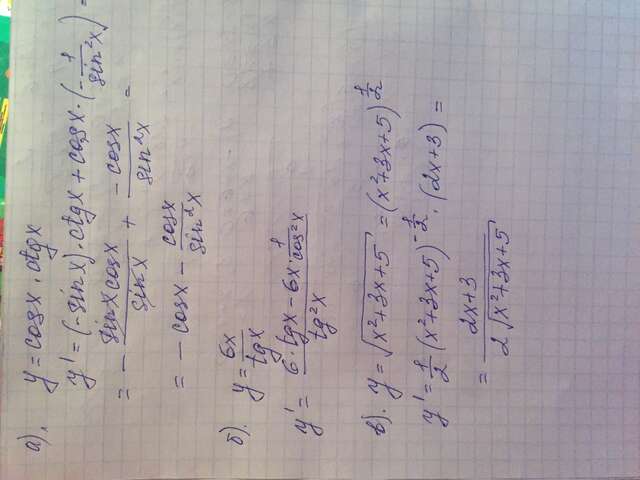 а). y = cosx · ctgx
y' = (-sinx) · ctgx + cosx · (-1/sin²x) =
= - sinx cosx/sinx + -cosx/sin²x =
= - cosx - cosx/sin²x
б). y = 6x/tgx
y' = (6 · tgx - 6x · 1/cos²x)/tg²x
в). y = √(x²+3x+5) = (x²+3x+5)^(1/2)
y' = 1/2 (x²+3x+5)^(-1/2) · (2x+3) =
= (2x+3)/(2√(x²+3x+5))